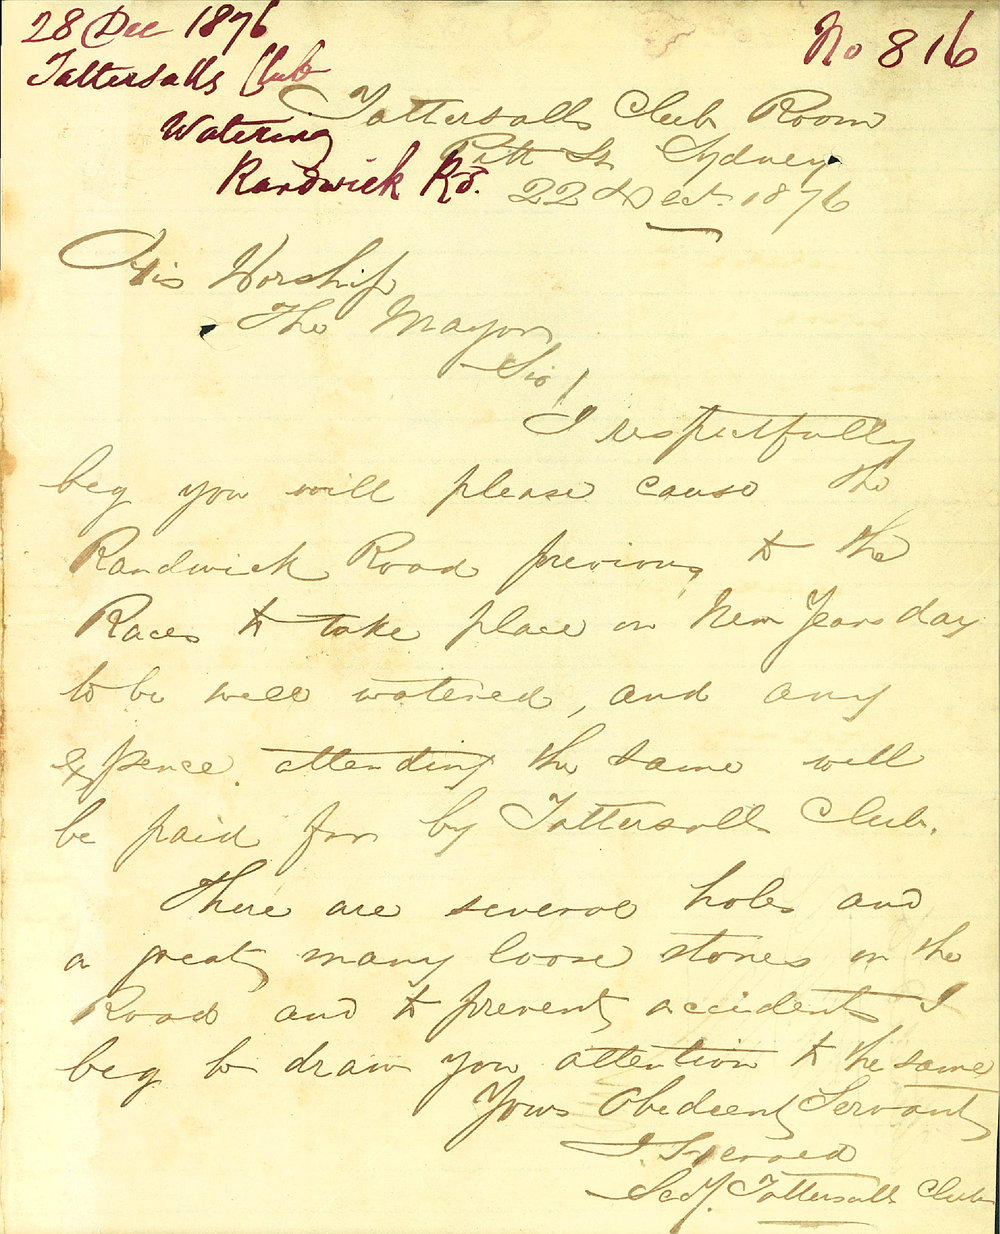 28 Dec 1876
Tattersalls Club
Watering
Randwick Rd.
No 816
Tattersalls Club Room
Pitt St Sydney
22nd Dec. 1876
His Worship
The Mayor
Sir /
I respectfully
beg you will please cause the
Randwick Road previous to the
Races to take place on New Years day
to be well watered, and any
expence attending the same will
be paid for by Tattersalls Club.
There are several holes and
a great many loose stones on the
Road and to prevent accidents I
beg to draw you attention to the same
Yours Obedient Servant
Secy. Tattersalls Club